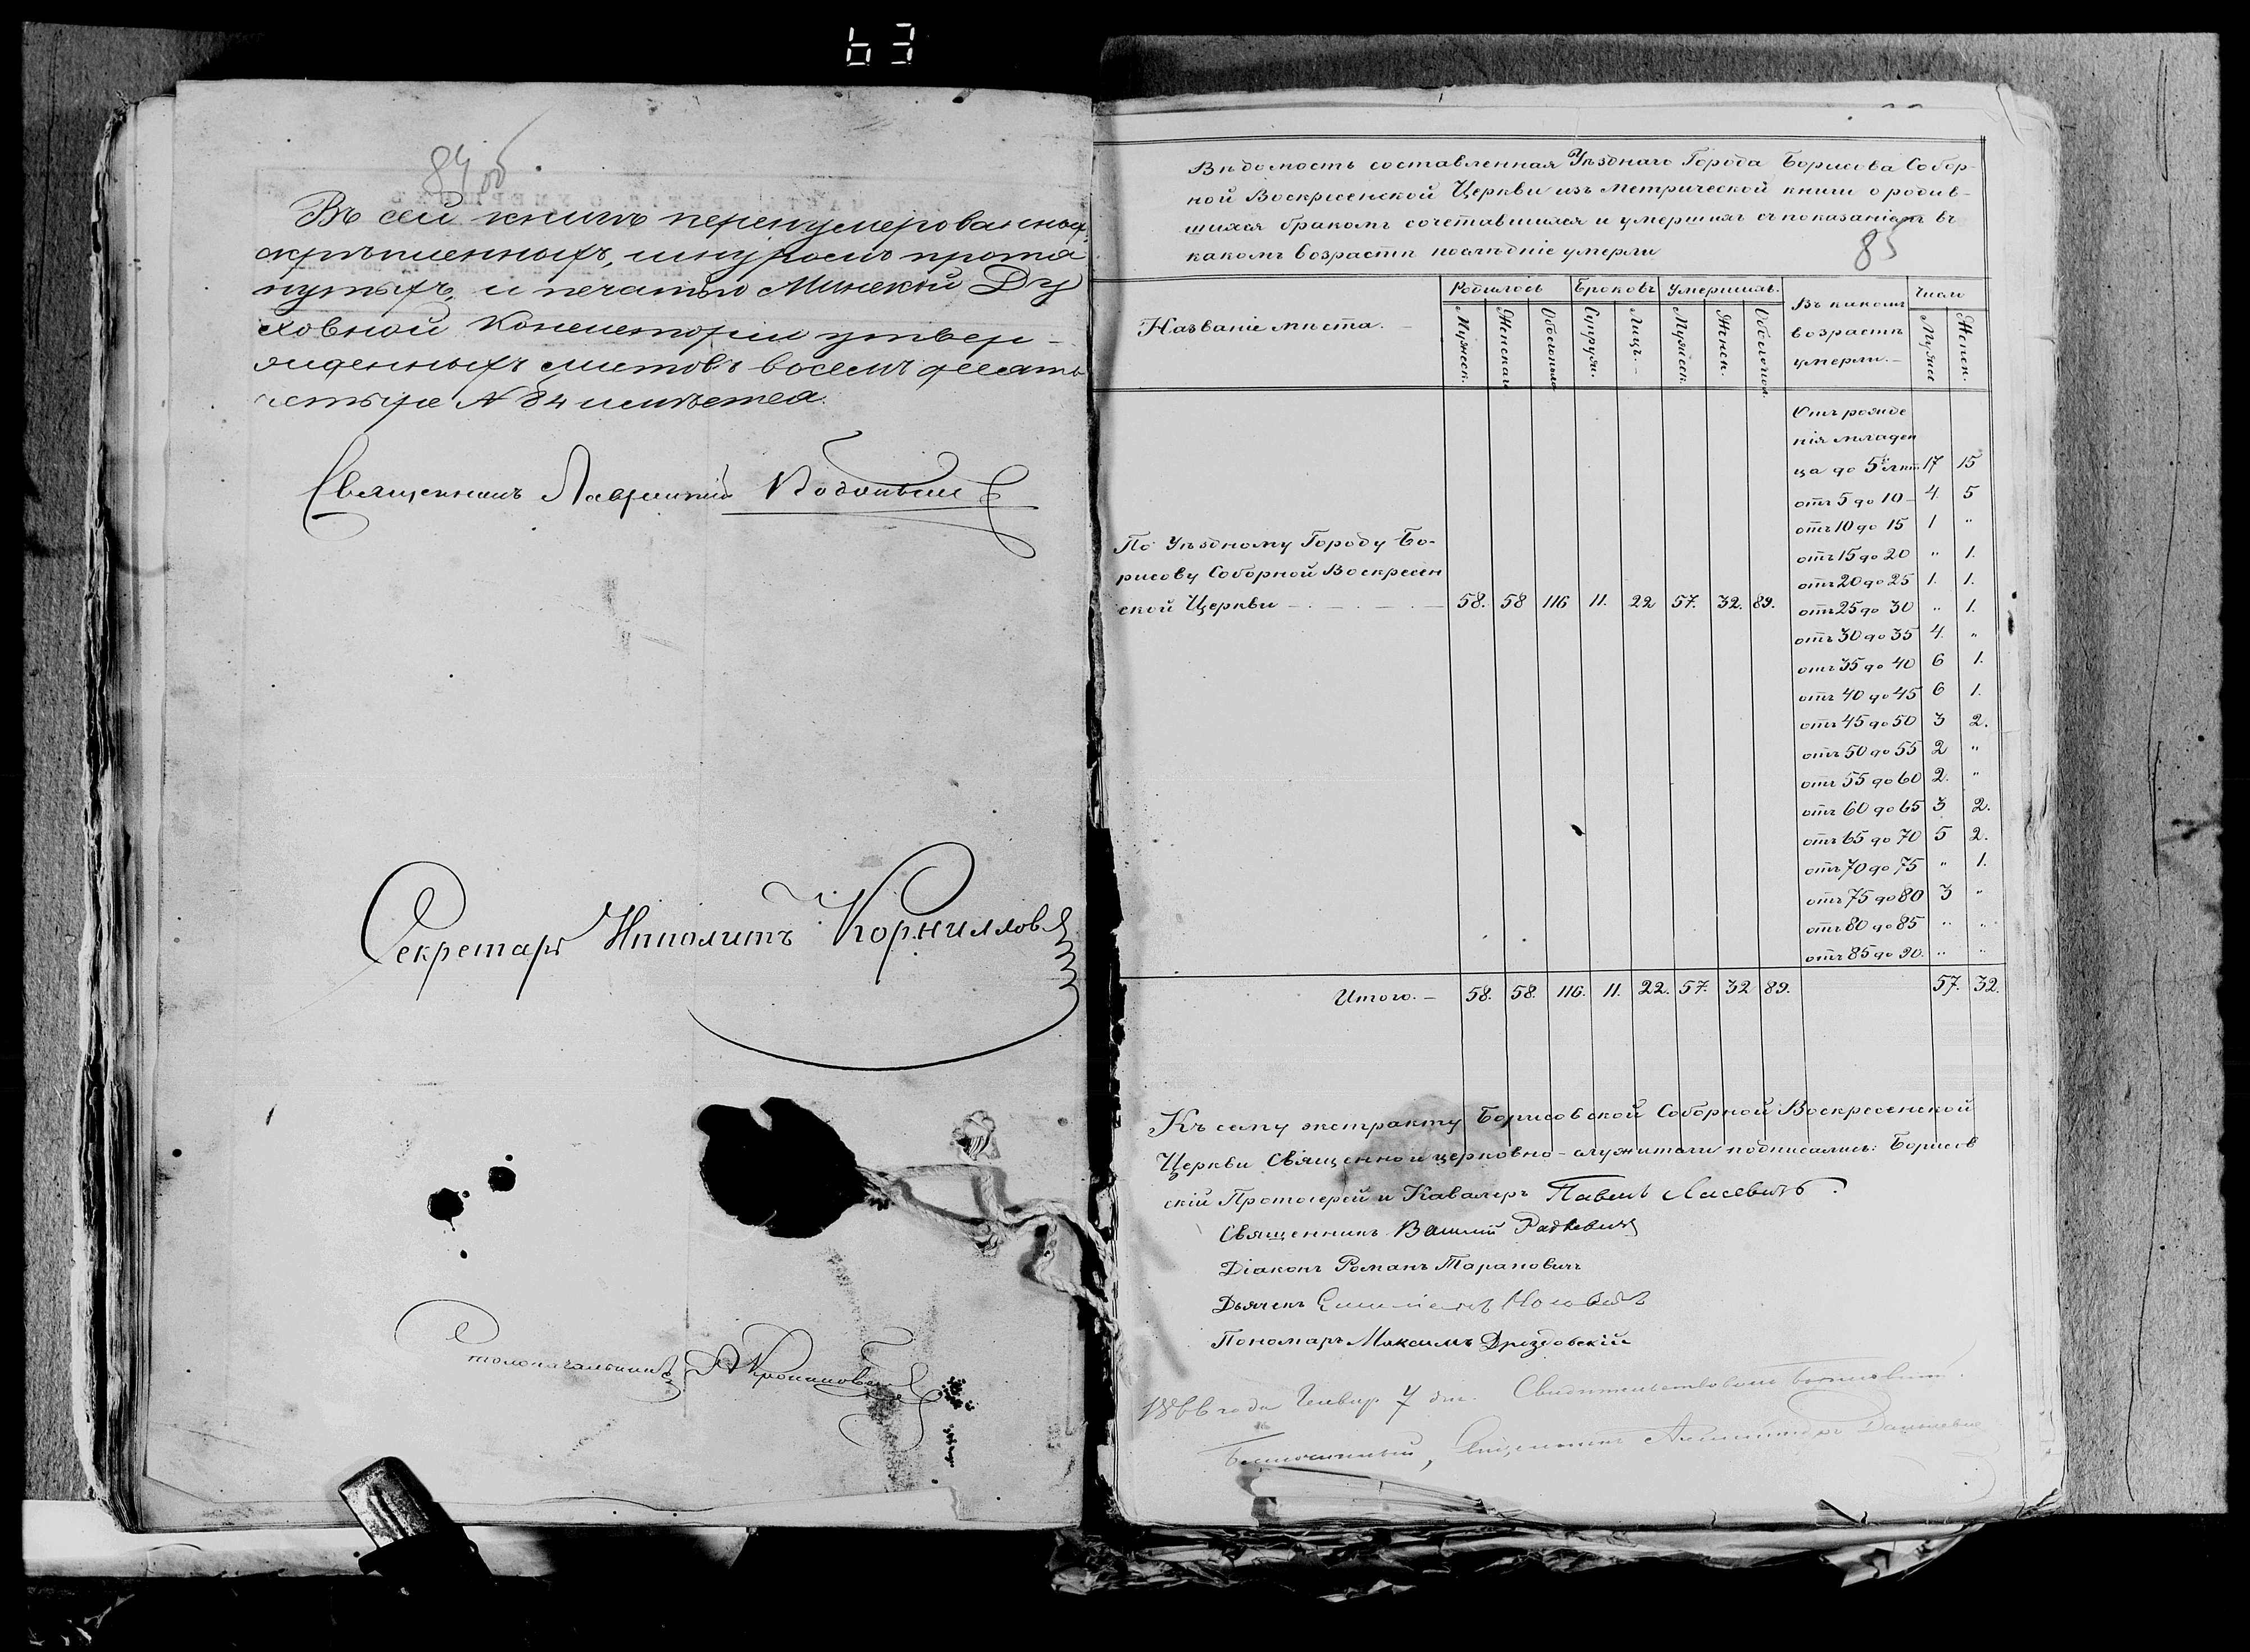 63
84 об
Въ сей книгѣ перенумерованныхъ,
скрѣпленныхъ, шнуромъ протя
нутыхъ, и печатью Минской Ду
ховной Консисторіи утвер-
жденныхъ листовъ восемь десятъ
четыре № 84 имѣется.
Священникъ
Секретарь Иполитъ Корниловъ
Столоначальникъ
Вѣдомость составленная Уѣзднаго Города Борисова Собор-
ной Воскресенской Церкви изъ Метрической книги о родив-
шихся бракомъ сочетавшихся и умершихъ съ показаніемъ въ
какомъ возрастѣ послѣдніе умерли
85
Названіе мѣста. Родилось Браковъ Умершихъ. Въ какомъ возрастѣ умерли. Число
Мужск. Женскаго Обоегопола Супруж. Лицъ. Мужеск. Женск. Обоегопол. Мужес Женск.
Отъ рожде
нія младен
ца до 5 лѣт. 17 15
отъ 5 до 10 4. 5
отъ 10 до 15 1 "
отъ 15 до 20 " 1.
отъ 20 до 25 1. 1.
По Уѣздному Городу Бо-
рисову Соборной Воскресен
ской Церкви 58. 58 116 11. 22 57. 32. 89.
отъ 25 до 30 " 1.
отъ 30 до 35 4. "
отъ 35 до 40 6 1.
отъ 40 до 45 6 1.
отъ 45 до 50 3 2.
отъ 50 до 55 2 "
отъ 55 до 60 2. "
отъ 60 до 65 3 2.
отъ 65 до 70 5 2.
отъ 70 до 75 " 1.
отъ 75 до 80 3 "
отъ 80 до 85 " "
отъ 85 до 90. " "
Итого. — 58. 58. 116. 11. 22. 57. 32 89. 57. 32.
Къ сему экстракту Борисовской Соборной Воскресенской
Церкви Священно и церковно-служители подписались: Борисов
скій Протоіерей и Кавалеръ Павелъ Лисевичъ.
Священникъ Василій Радкевичъ
Діаконъ Романъ Тарановичъ
Дьячекъ
Пономарь Максимъ Дроздовскій
1866 года Генвар 7 дня.
Благочинный, Священникъ